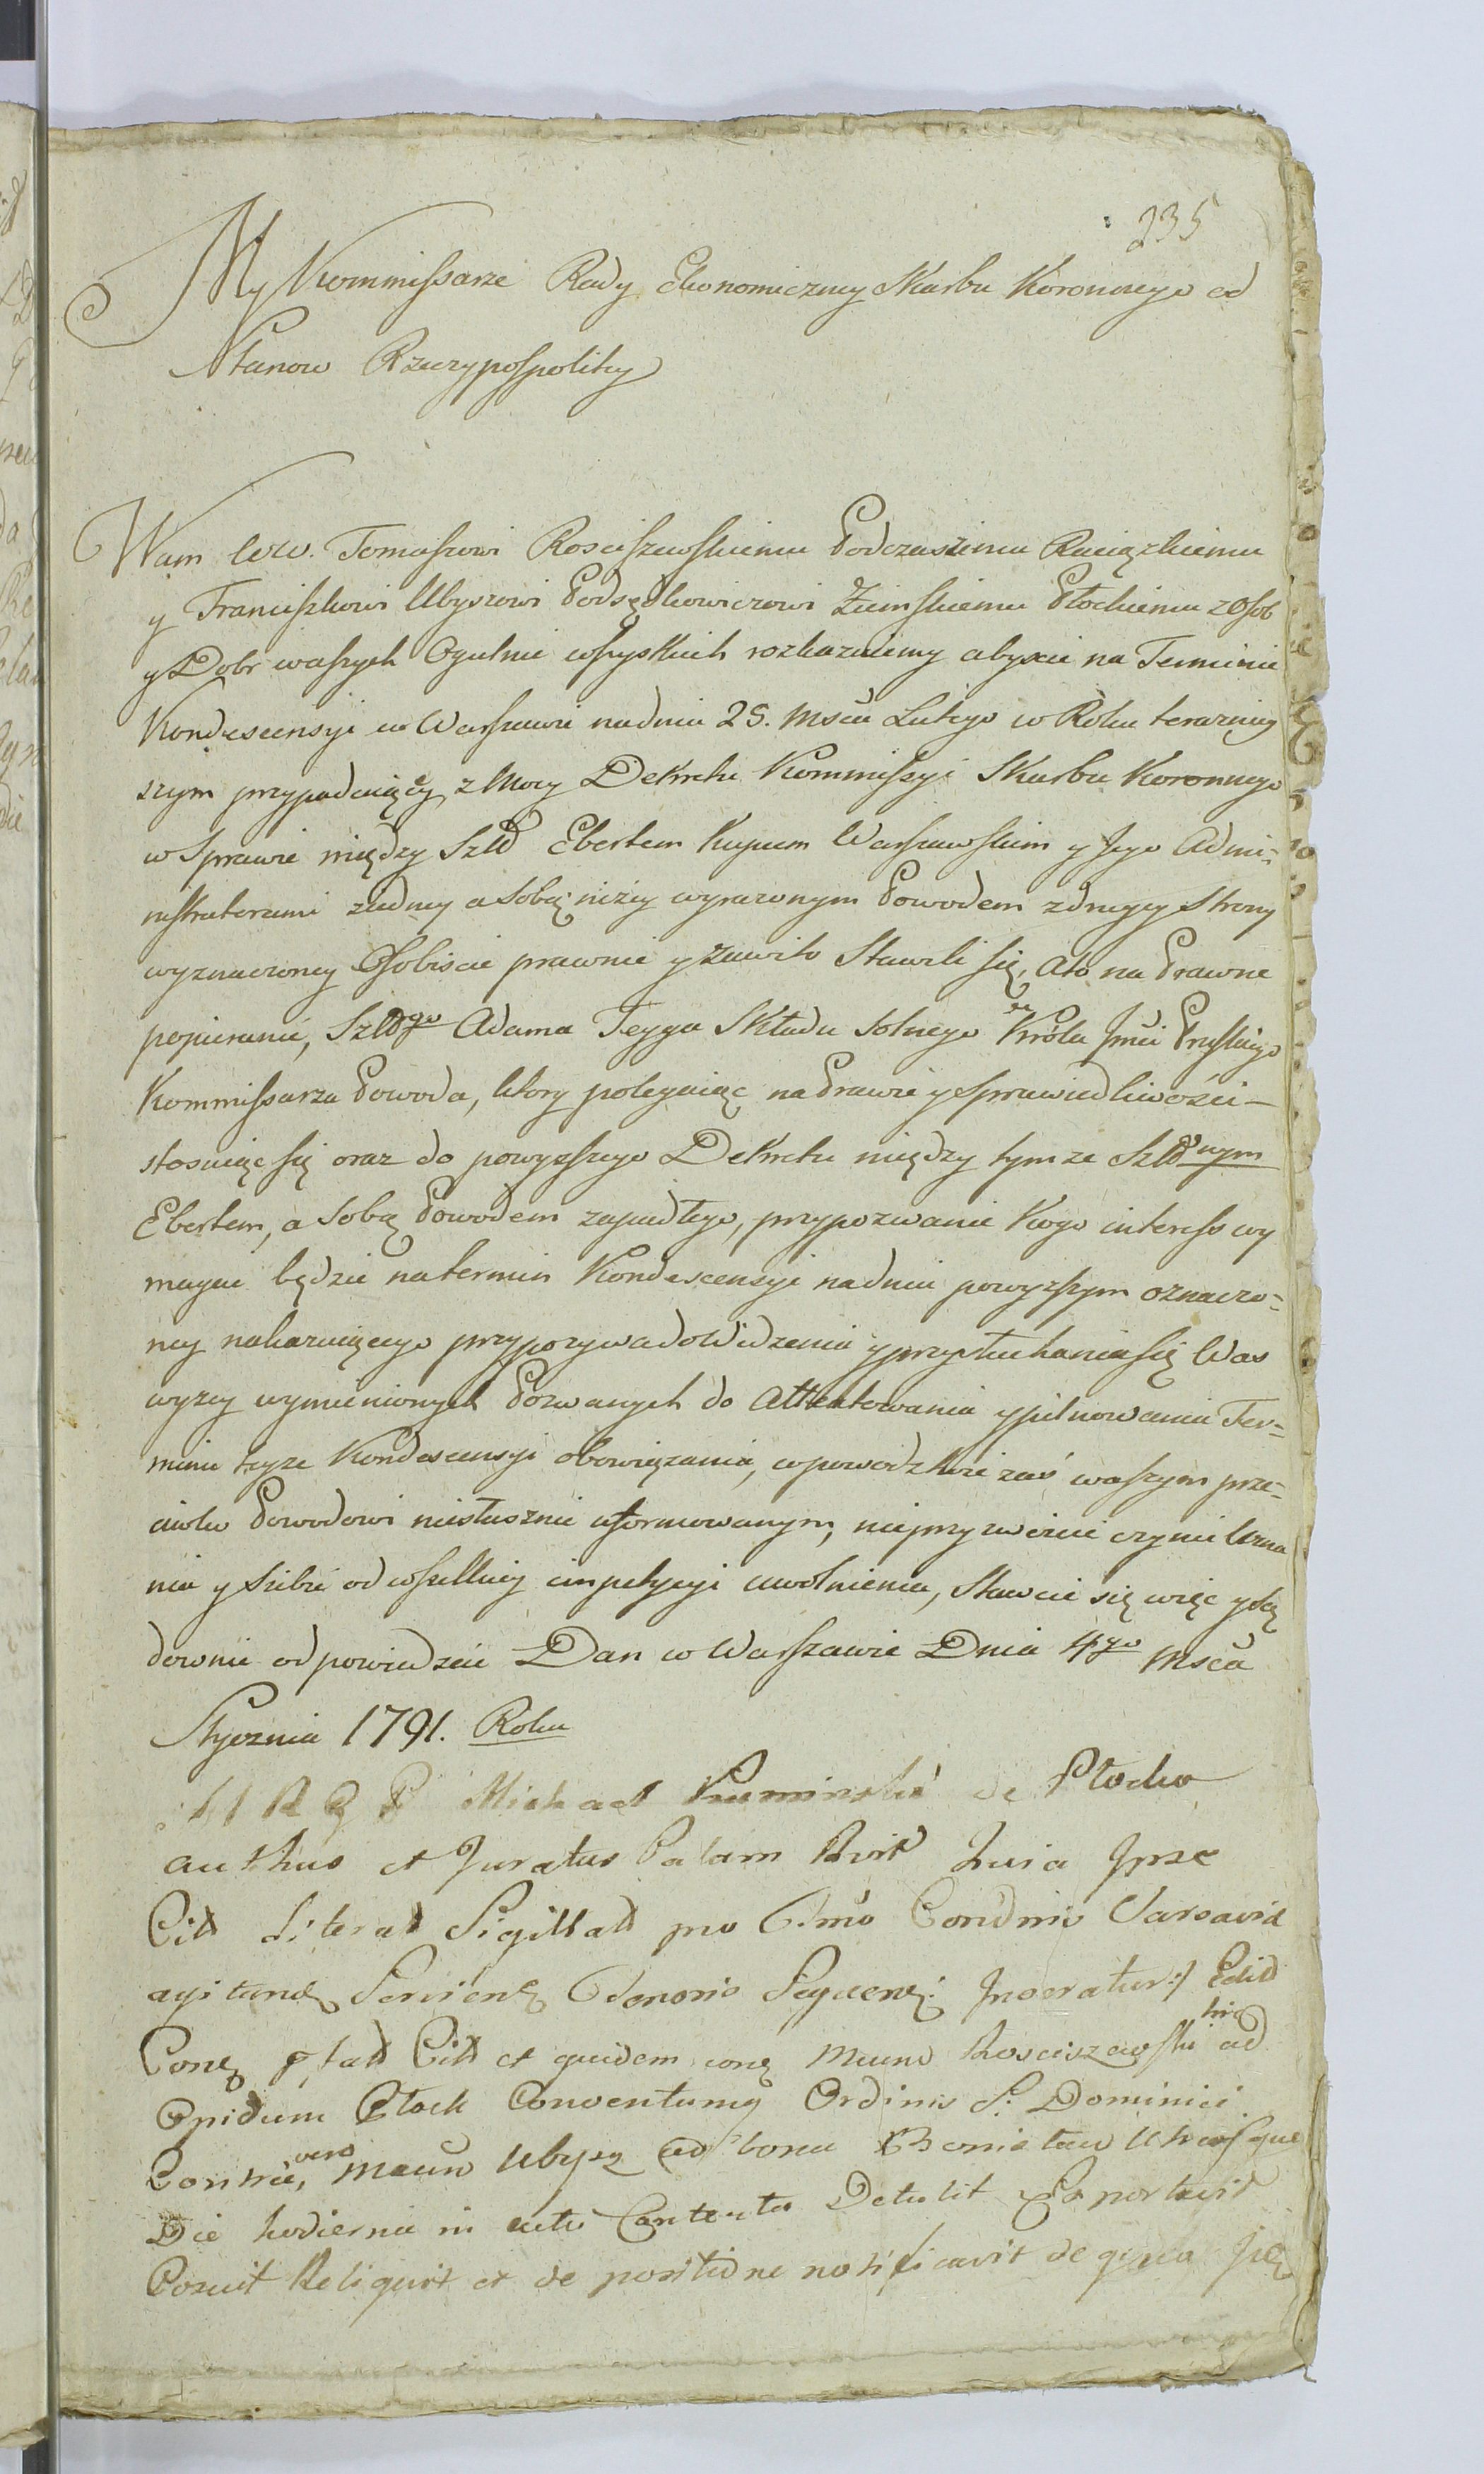 235
My Kommissarze Rady Ekonomiczney Skarbu Koronnego od
Stanow Rzeczypospolitey
Wam Ww. Tomaszowi Rosciszewskiemu Podczaszemu Raciązkiemu
y Franciszkowi Ubyszowi Podsędkowiczowi Ziemskiemu Płockiemu z Osob
y Dobr waszych Ogulnie wszystkich rozkazuiemy abyscie na Terminie
Kondescensyi w Warszawie na dniu 25. Msca Lutego w Roku terazniey
szym przypadaiącey z Mocy Dekretu Kommissyi Skarbu Koronnego
w Sprawie między Szld Ebertem Kupcem Warszawskim y Jego Admi-
nistratorami z iedney a Sobą niżey wyrażonym Powodem z drugiey Strony
wyznaczoney Osobiscie prawnie y zawito Stawili się, Ato na Prawne
popieranie, Szldgo Adama Teyga Składu Solnego Króla Jmci Pruskiego
Kommissarza Powoda, ktory polegaiąc na Prawie y Sprawiedliwości
stosuiąc się oraz do powyzszego Dekretu między tymze Szldnym
Ebertem, a Sobą Powodem zapadłego, przypozwanie kogo interess wy
magac będzie na termin Kondescensyi na dniu powyzszym oznaczo-
ney nakazuiącego przypozywa do Widzenia y przysłuchania się Was
wyzey wymienionych Pozwanych do Attentowania y pilnowania Ter-
minu teyze Kondescensyi obowiązania, w powodztwie zas waszym prze-
ciwko Powodowi niesłusznie uformowanym, nieprzyzwoicie czynie Uzna
nia y Siebie od wszelkiey impetycyi uwolnienia, Stawcie się więc y Są
downie odpowiedzcie Dan w Warszawie Dnia 4go Msca
Stycznia 1791. Roku
Michael de Płocko
authus et Juratus Palam Ipse
Citt Literatt Sigillatt pro Varsavia
Cons Citt et quidem Rosciszewski ad
Opidum Płock Conventumq Ordinis S. Dominici
vero Ubysz ad bona
Die hodierna in actu Contento Detulit Exportavit
Posuit Reliquit et de positione notificavit de